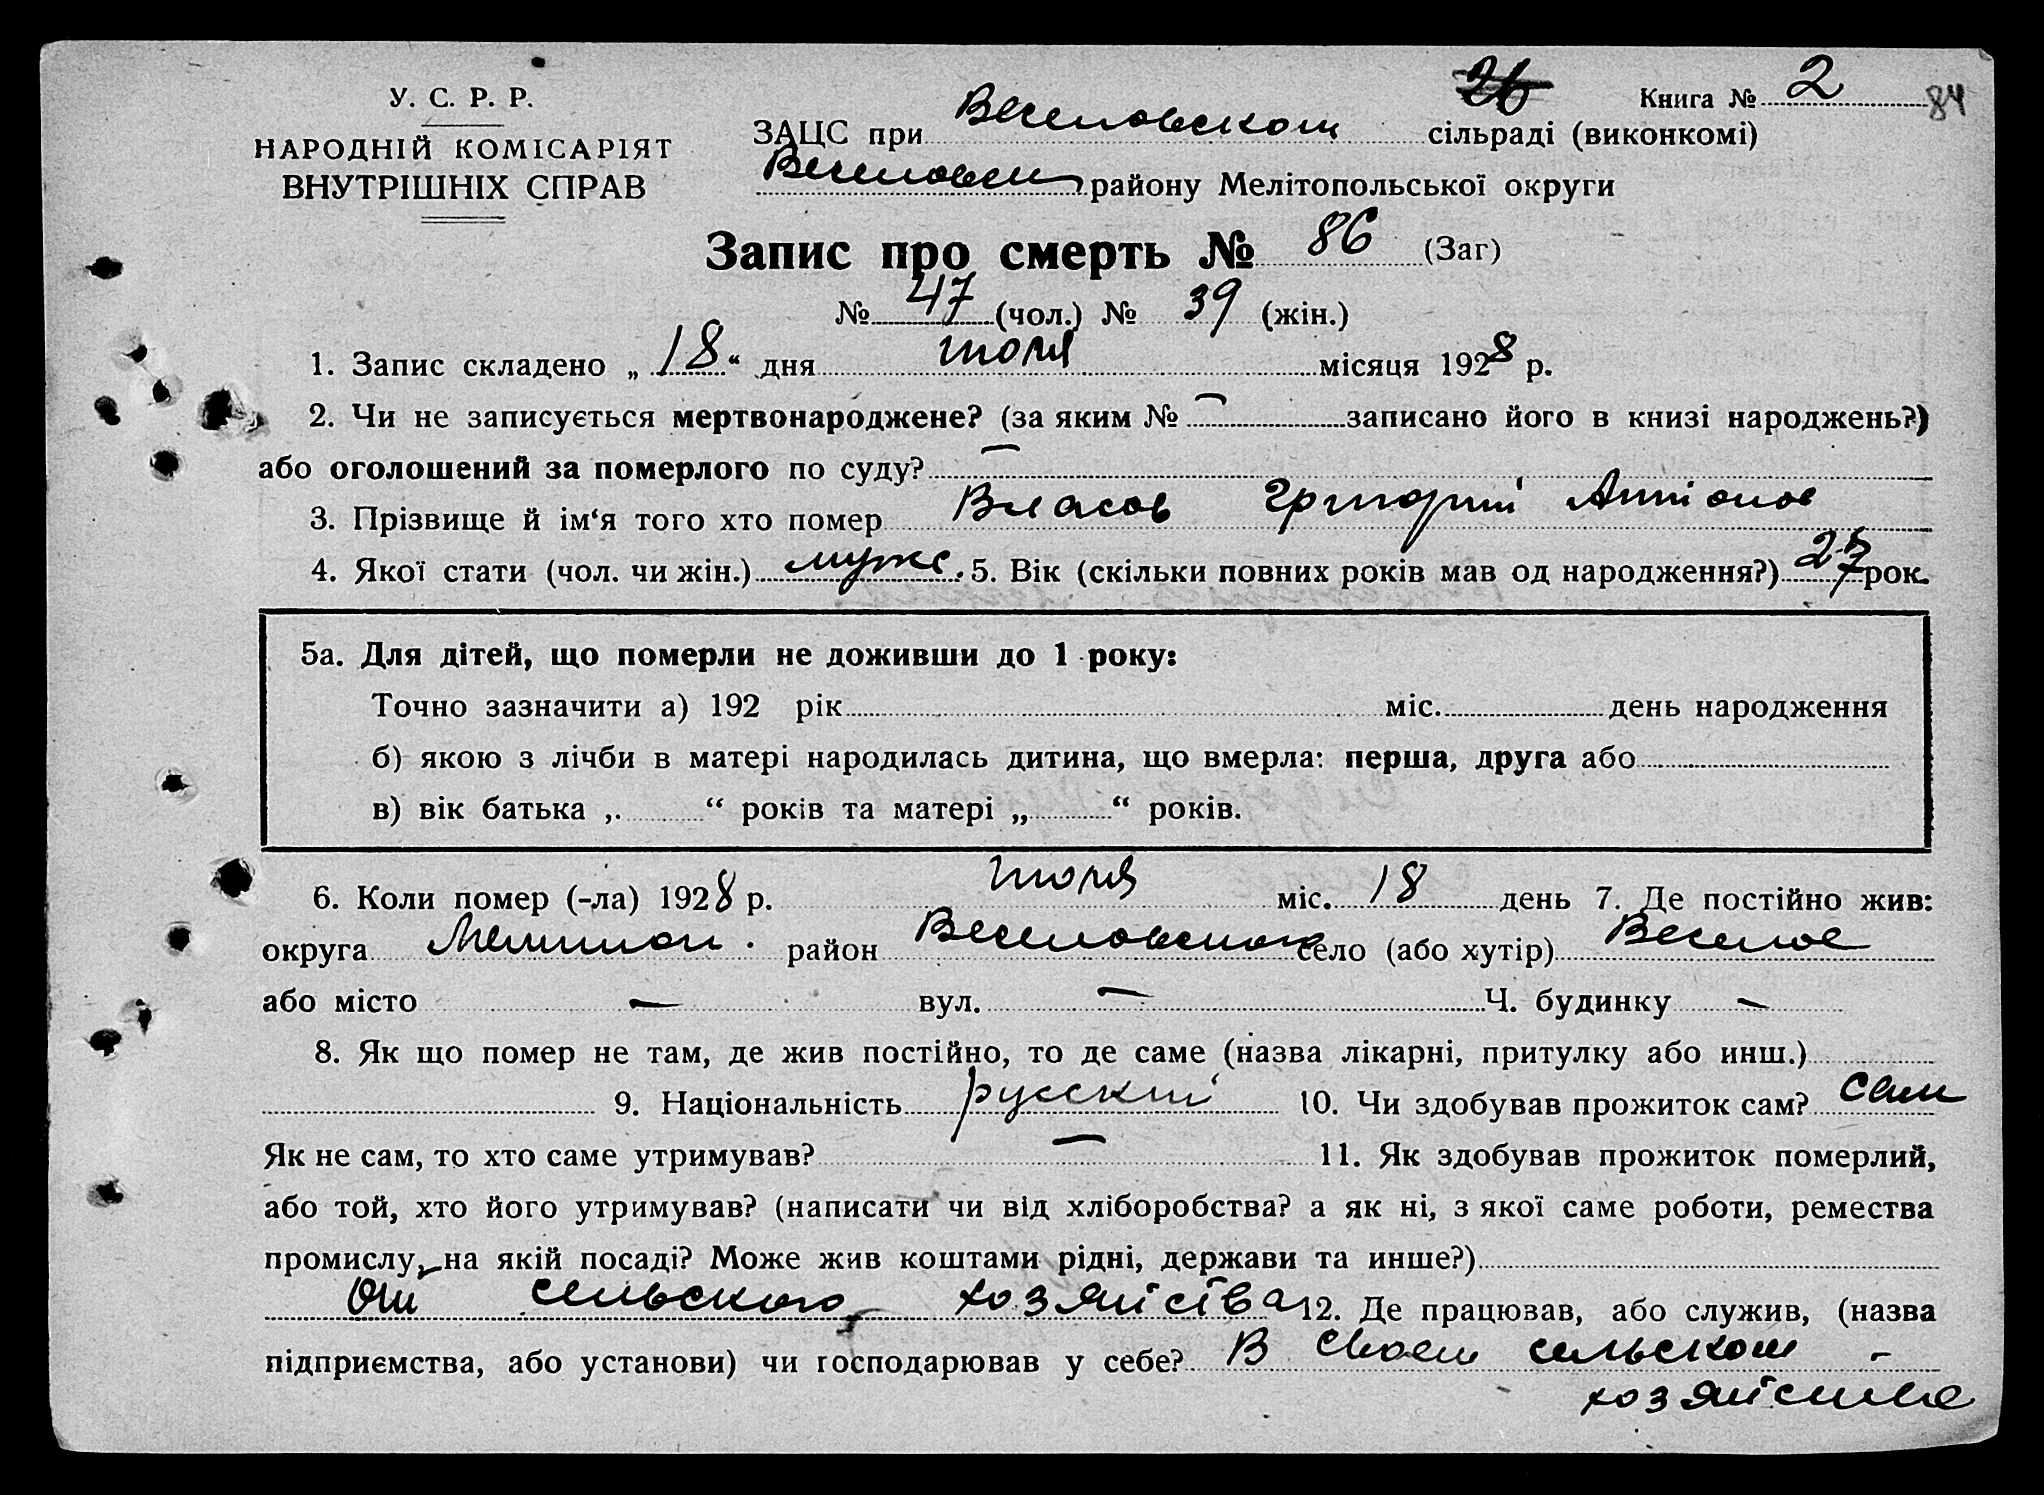 У. С. Р. Р.
НАРОДНІЙ КОМІСАРІЯТ
ВНУТРІШНІХ СПРАВ
Книга № 2 84
ЗАЦС при Веселовском сільраді (виконкомі)
Веселовск району Мелітопольської округи
Запис про смерть № 86 (Заг)
№ 47 (чол.) № 39 (жін.)
1. Запис складено „18“ дня июля місяця 1928 р.
2. Чи не записується мертвонароджене? (за яким № — записано його в книзі народжень?)
або оголошений за померлого по суду? —
3. Прізвище й ім‘я того хто помер Власов Григорий Антонов
4. Якої стати (чол. чи жін.) мужс. 5. Вік (скільки повних років мав од народження?) рок.
5а. Для дітей, що померли не доживши до 1 року:
Точно зазначити а) 192 рік міс. день народження
б) якою з лічби в матері народилась дитина, що вмерла: перша, друга або
в) вік батька „ “ років та матері „ “ років.
6. Коли помер (-ла) 1928 р. июля міс. 18 день 7. Де постійно жив:
округа Мелитоп. район Веселовского село (або хутір) Веселое
або місто — вул. — Ч. будинку —
8. Як що помер не там, де жив постійно, то де саме (назва лікарні, притулку або инш.)
9. Національність русский 10. Чи здобував прожиток сам? сам
Як не сам, то хто саме утримував? — 11. Як здобував прожиток померлий,
або той, хто його утримував? (написати чи від хліборобства? а як ні, з якої саме роботи, ремества
промислу, на якій посаді? Може жив коштами рідні, держави та инше?)
От сельского хозяйства 12. Де працював, або служив, (назва
підприємства, або установи) чи господарював у себе? В своем сельском -
хозяйстве